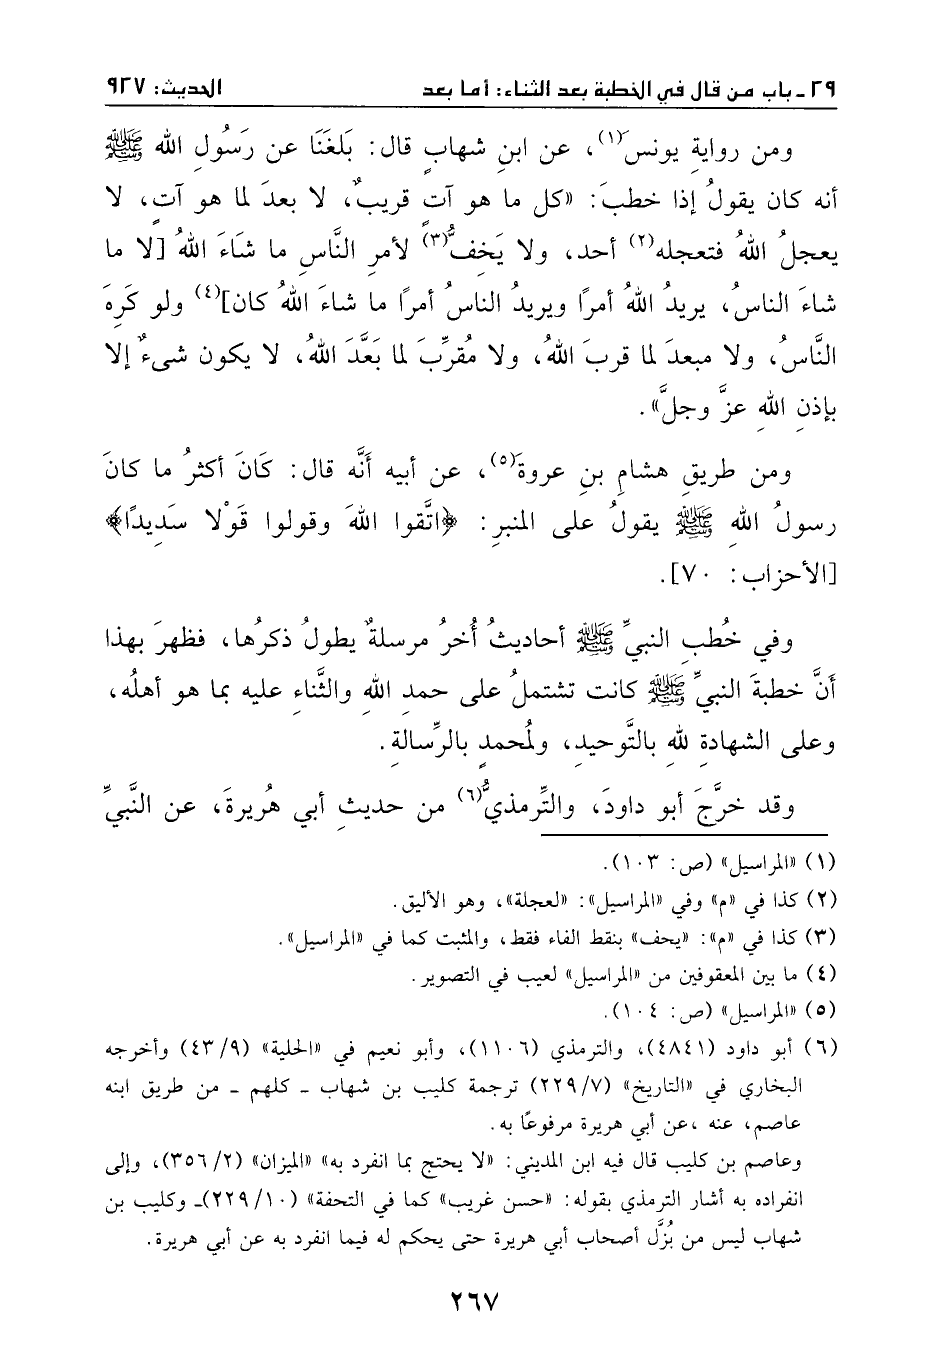 ٢٩ - باب من قال في الخطبة بعد الثناء: أما بعد الحديث: ٩٢٧
ومن روايةِ يونس(١)، عن ابنِ شهابٍ قال: بَلغَنَا عن رَسُولِ الله ﷺ
أنه كان يقولُ إذا خطبَ: «كل ما هو آت قريبٌ، لا بعدَ لما هو آتٍ، لا
يعجلُ اللهُ فتعجله(٢) أحد، ولا يَخفُّ(٣) لأمرِ النَّاسِ ما شَاءَ اللهُ [لا ما
شاءَ الناسُ، يريدُ اللهُ أمرًا ويريدُ الناسُ أمرًا ما شاءَ اللهُ كان](٤) ولو كَرِهَ
النَّاسُ، ولا مبعدَ لما قربَ اللهُ، ولا مُقرِّبَ لما بَعَّدَ اللهُ، لا يكون شىءٌ إلا
بإذنِ اللهِ عزَّ وجلَّ».
ومن طريقِ هشامِ بنِ عروةَ(٥)، عن أبيه أنَّه قال: كَانَ أكثرُ ما كانَ
رسولُ اللهِ ﷺ يقولُ على المنبرِ: ﴿اتَّقوا اللهَ وقولوا قَوْلا سَدِيدًا﴾
[الأحزاب: ٧٠].
وفي خُطبِ النبيِّ ﷺ أحاديثُ أُخرُ مرسلةٌ يطولُ ذكرُها، فظهرَ بهذا
أنَّ خطبةَ النبيِّ ﷺ كانت تشتملُ على حمدِ اللهِ والثَّناءِ عليه بما هو أهلُه،
وعلى الشهادةِ للهِ بالتَّوحيدِ، ولمُحمدٍ بالرِّسالةِ.
وقد خرَّجَ أبو داودَ، والتِّرمذيُّ(٦) من حديثِ أبي هُريرةَ، عن النَّبيِّ
(١) «المراسيل» (ص: ١٠٣).
(٢) كذا في «م» وفي «المراسيل»: «لعجلة»، وهو الأليق.
(٣) كذا في «م»: «يحف» بنقط الفاء فقط، والمثبت كما في «المراسيل».
(٤) ما بين المعقوفين من «المراسيل» لعيب في التصوير.
(٥) «المراسيل» (ص: ١٠٤).
(٦) أبو داود (٤٨٤١)، والترمذي (١١٠٦)، وأبو نعيم في «الحلية» (٤٣/٩) وأخرجه
البخاري في «التاريخ» (٢٢٩/٧) ترجمة كليب بن شهاب - كلهم - من طريق ابنه
عاصم، عنه ،عن أبي هريرة مرفوعًا به.
وعاصم بن كليب قال فيه ابن المديني: «لا يحتج بما انفرد به» «الميزان» (٣٥٦/٢)، وإلى
انفراده به أشار الترمذي بقوله: «حسن غريب» كما في التحفة» (٢٢٩/١٠)- وكليب بن
شهاب ليس من بُزَّل أصحاب أبي هريرة حتى يحكم له فيما انفرد به عن أبي هريرة.
٢٦٧